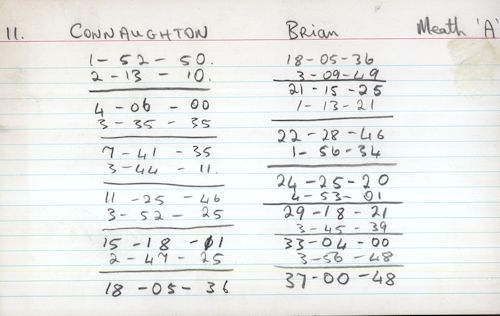 11. CONNAUGHTON Brian Meath 'A'
1-52-50.
2-13-10.
4-06-00
3-35-35
7-41-35
3-44-11.
11-25-46
3-52-25
15-18-11
2-47-25
18-05-36
18-05-36
3-09-49
21-15-25
1-13-21
22-28-46
1-56-34
24-25-20
4-53-01
29-18-21
3-45-39
33-04-00
3-56-48
37-00-48